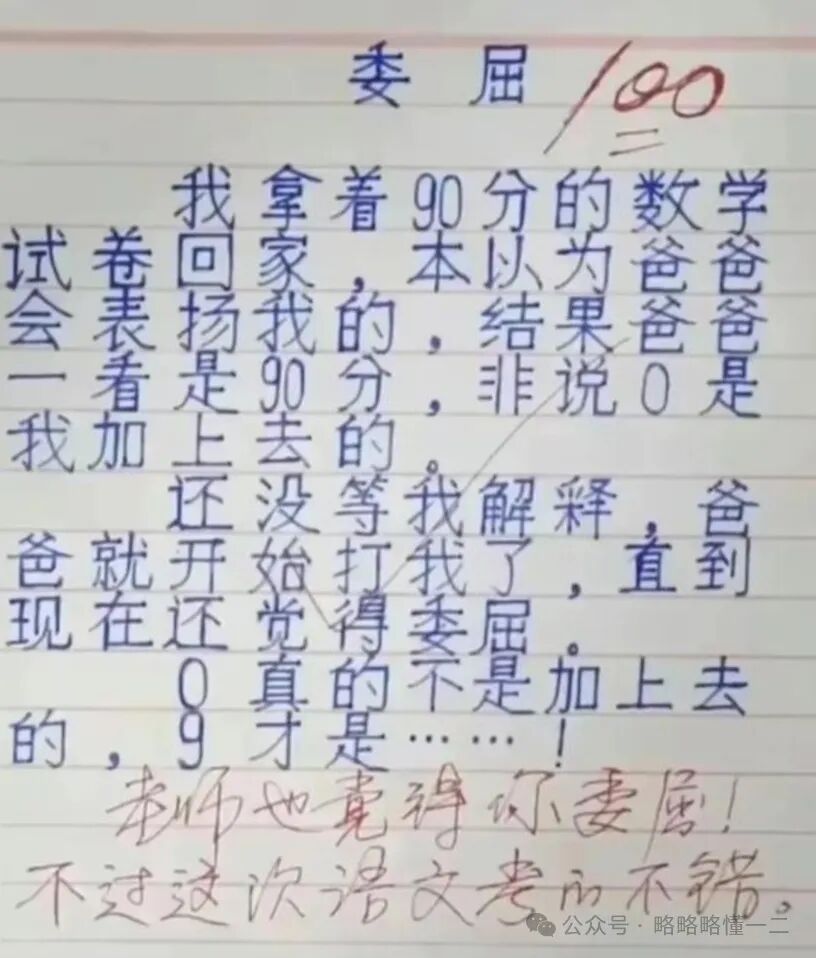 委屈 100
我拿着90分的数学
试卷回家，本以为爸爸
会表扬我的，结果爸爸
一看是90分，非说0是
我加上去的。
还没等我解释，爸
爸就开始打我了，直到
现在还觉得委屈。
0真的不是加上去
的，9才是……！
老师也觉得你委屈！
不过这次语文考的不错。
公众号·略略略懂一二